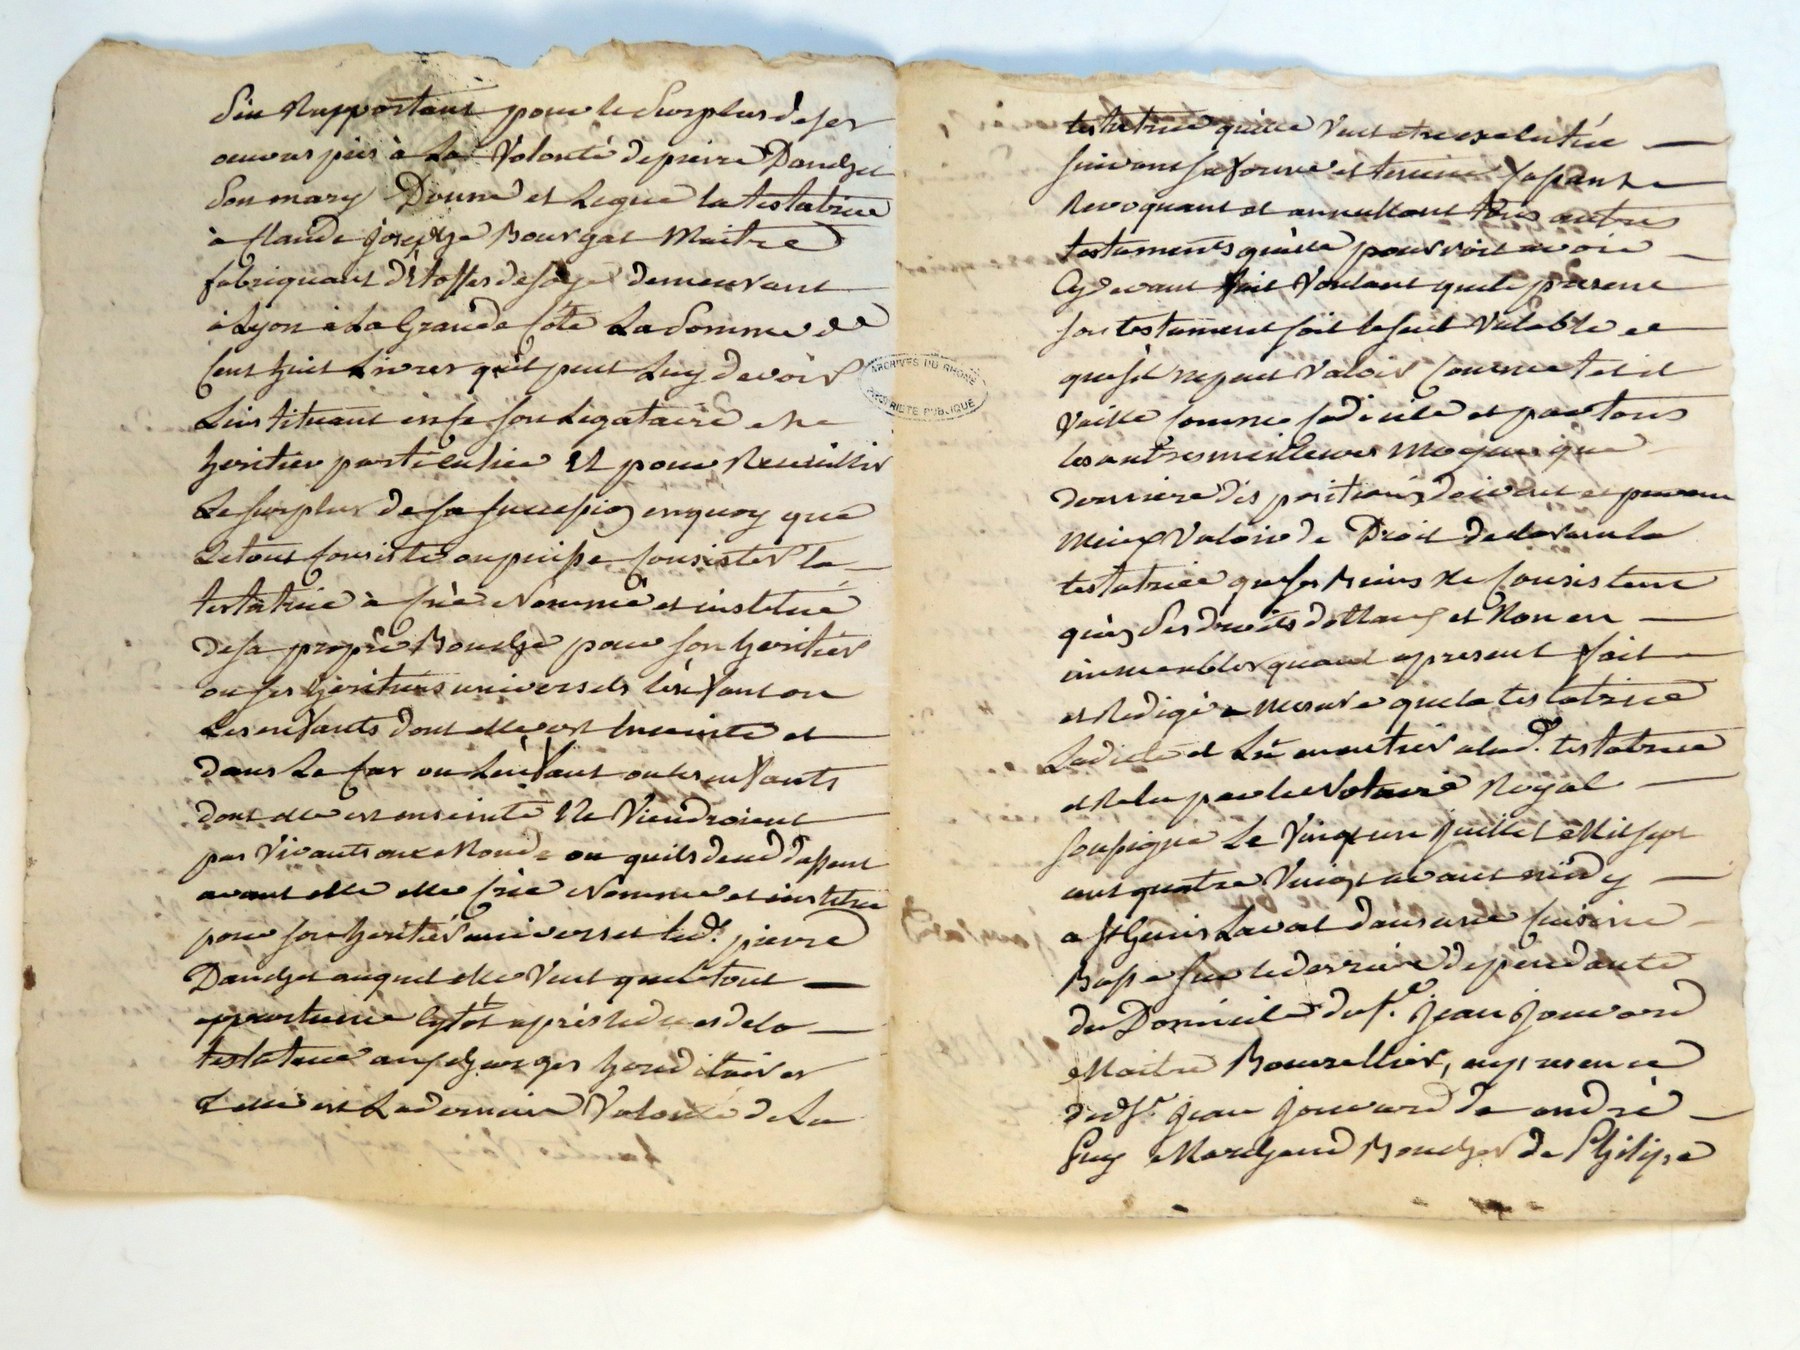 S'en Rapportant pour le Surplus de ses
oeuvres pies à La Volonté de pierre Dandet
Son mary Donne et Legue la testatrice
à Claude joseph Bourgat Maitre
fabriquant d'étoffes de soye demeurant
à Lyon à La Grande Côte La Somme de
Cent huit Livres qu'il peut Luy devoir
L'instituant en ce son Legataire et
heritier particulier Et pour Recueillir
Le surplus de sa succession en quoy que
Le tout Consiste ou puisse Consister la
testatrice à Créé Nommé et institué
de sa propre Bouche pour son heritier
ou ses heritiers universels L'enfant ou
Les enfants dont elle est Enceinte et
dans Le Cas ou L'enfant ou les enfants
dont elle est enceinte Ne Viendroient
pas Vivants au Monde ou quils
avant elle elle Crée Nomme et institue
pour son heritier universel led. pierre
Dandet auquel elle Veut que le tout
appartienne après le deces de la
testatrice aux Charges hereditaires
Telle est La derniere Volonté de La
testatrice qu'elle Veut etre executée
suivant sa forme et teneur
Revoquant et annullant tous autres
testaments qu'elle pourroit avoir
Cy devant fait Voulant que le present
son testament soit le seul Valable et
que s'il ne peut Valoir Comme tel il
Vaille comme Codicile et par tous
les autres meilleurs Moyens que
derniere dispositions doivent et peuvent
Mieux Valoir de Droit declarant la
testatrice que ses Biens Ne Consistent
qu'en Ses droits dottaux et Non en
immeubles quand a present fait
et Redigé a Mesure que la testatrice
La dicté et Lû en entier a lad. testatrice
et Relu par le Notaire Royal
soussigné Le Vingt un juillet Mil sept
cent quatre Vingt avant midy
a St Genis Laval dans une Cuisine
Basse sur le derriere dependante
du Domicile du sr. jean jouvard
Maitre Bourrellier, en presence
dud sr. jean jouvard de andré
Guy Marchand Boucher de Philipe
ARCHIVES DU RHONE
PROPRIETE PUBLIQUE